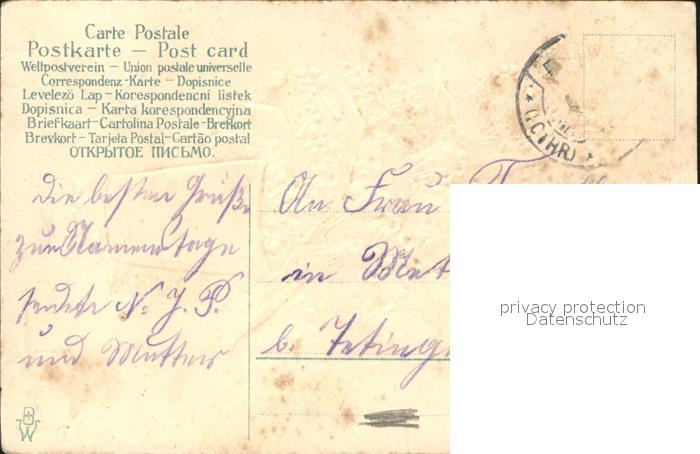 Carte Postale
Postkarte — Post card
Weltpostverein — Union postale universelle
Correspondenz-Karte — Dopisnice
Levelező Lap — Korespondencni listek
Dopisnica — Karta korespondencyjna
Briefkaart — Cartolina Postale — Brefkort
Brevkort — Tarjeta Postal — Cartão postal
ОТКРЫТОЕ ПИСЬМО.
die besten Grüße
zum Namenstage
sendet N. J. P.
und Mutter
An Frau
in Met
b. Teting
(LOTHR)
privacy protection
Datenschutz